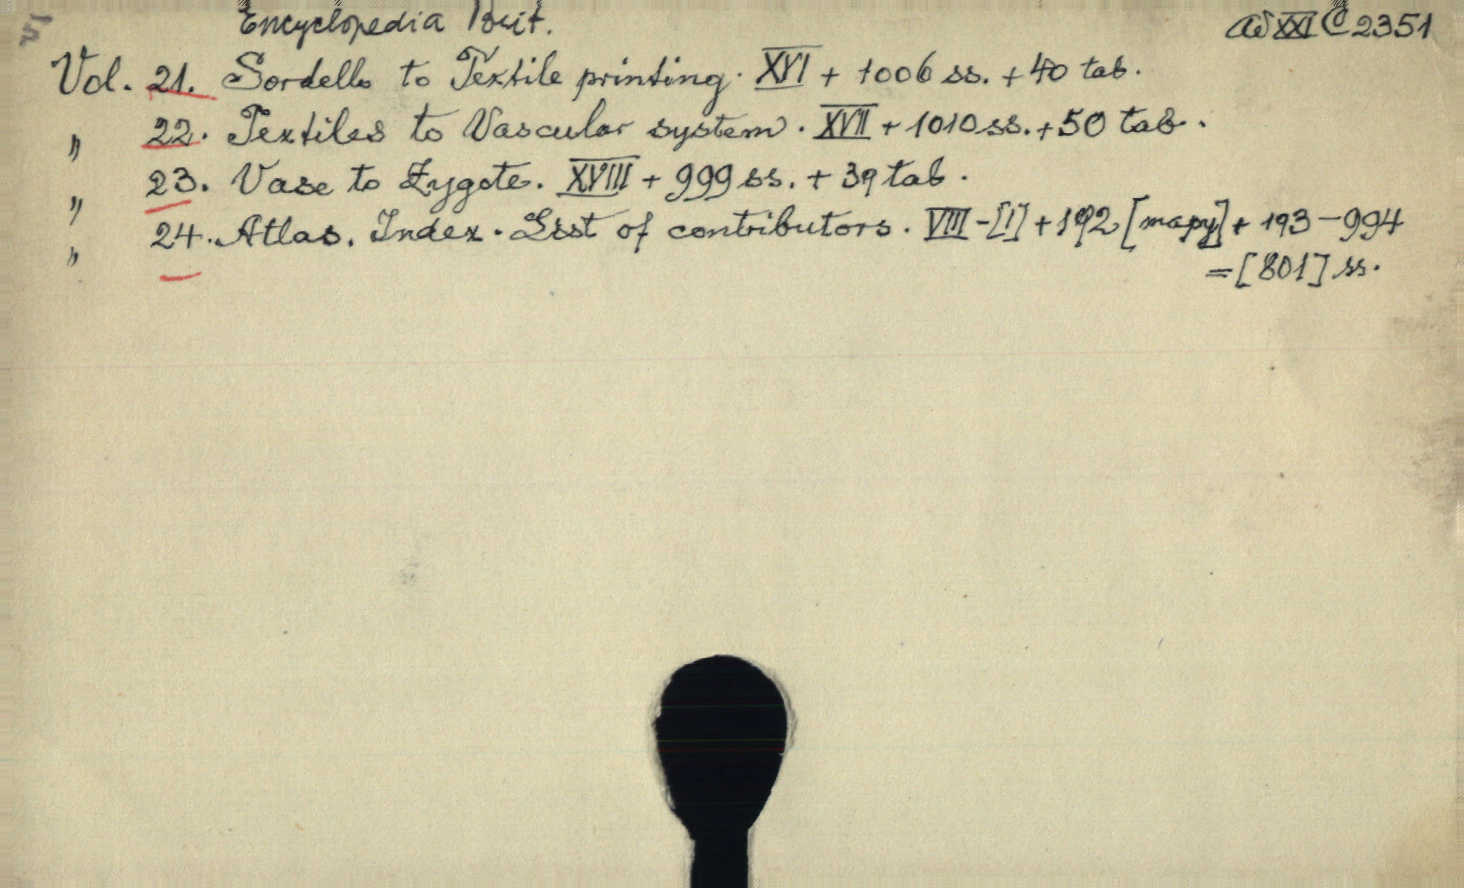 Encyclopedia Brit.
ad XXI C 2351
Vol. 21. Sordello to Textile printing. XVI + 1006 ss. + 40 tab.
" 22. Textiles to Vascular system. XVII + 1010 ss. + 50 tab.
" 23. Vase to Zygote. XVIII + 999 ss. + 39 tab.
" 24. Atlas. Index. List of contributors. VIII - [1] + 192 [mapy] + 193 — 994
= [801] ss.